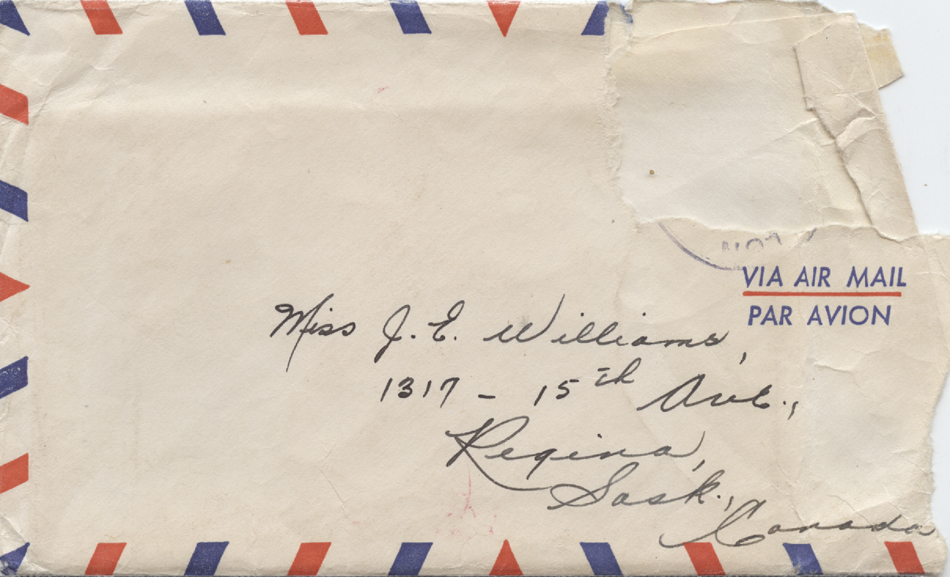 VIA AIR MAIL
PAR AVION
Miss J. E. Williams,
1317 - 15th Ave.,
Regina,
Sask.,
Canada